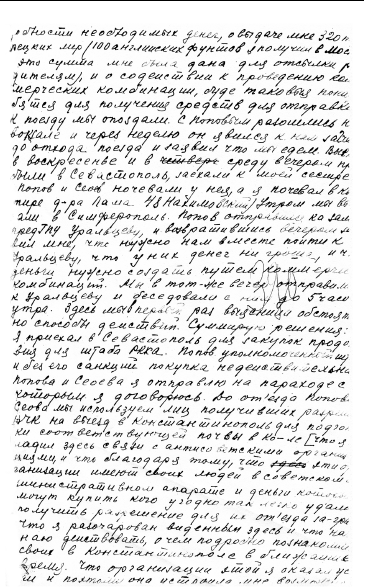 ности необходимых денег, о выдаче мне 320
лир /100 английских фунтов я получил в Мос
эта сумма мне была дана для отсылки р
дителям, и о содействии к проведению ком
мерческих комбинаций, буде таковые пона
бятся для получения средств для отправки
К поезду мы опоздали. С Поповым разошлись н
вокзале и через неделю он явился к нам за
до отхода поезда и заявил что мы едем. Вые
в воскресенье и в четверг среду вечером пр
были в Севастополь, заехали к моей сестре
Попов и Сеов ночевали у нея, а я ночевал в ква
тире д-ра Лама. Утром мы
али в Симферополь. Попов отправился ко зам
пред Уральцеву, и возвратившись вечером
мне, что нужно нам вместе пойти к
Уральцеву, что у них денег ни гроша, и ч
деньги нужно создать путем коммерче
комбинаций. Мы в тот-же вечер отправили
к Уральцеву и беседовали с ним до 5 часов
утра. Здесь мы первый раз выяснили обстоя
но способы действий. Суммирую решения:
я приехал в Севастополь для закупок продо
вия для штаба РККА. Попов уполномоченный
и без его санкции покупка недействительна
Попова и Сеова я отправлю на пароходе с
которым я договорюсь. До от'езда Попова
Сеова мы используем лиц получивших разреш
ЧК на выезд в Константинополь для подго
ки соответствующей почвы в Ко-ле
здесь связи с антисоветскими органи
циями, и что благодаря тому, что эти о
ганизации имеют своих людей в советском
министративном аппарате и деньги
могут купить кого угодно так легко удало
получить разрешение для их от'езда за-гра
Что я разочарован виденным здесь и что
наю действовать, о чем подробно познакомлю
своих в Константинополе в ближайшее
время. Что организации этой я оказал ус
и поэтому она